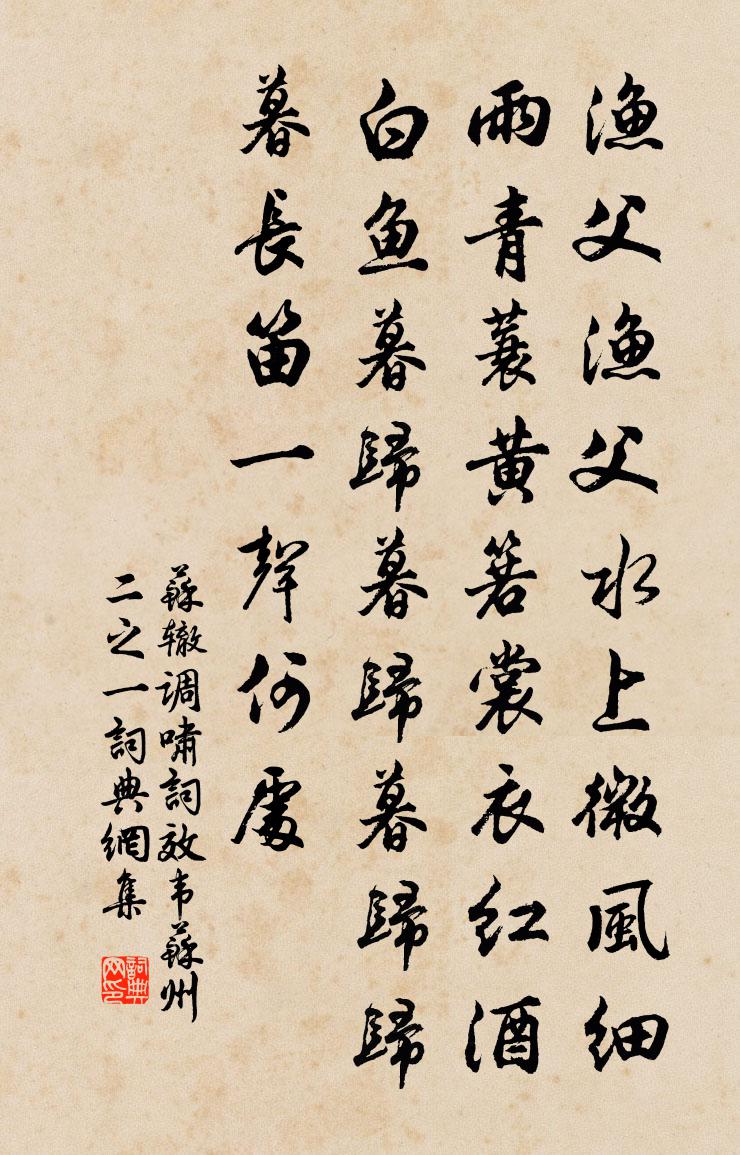 渔父渔父水上微風细
雨青蓑黄箬裳衣红酒
白鱼暮歸暮歸暮歸歸
暮長笛一聲何處
蘇辙调嘯詞效韦蘇州
二之一詞典網集
詞典网印